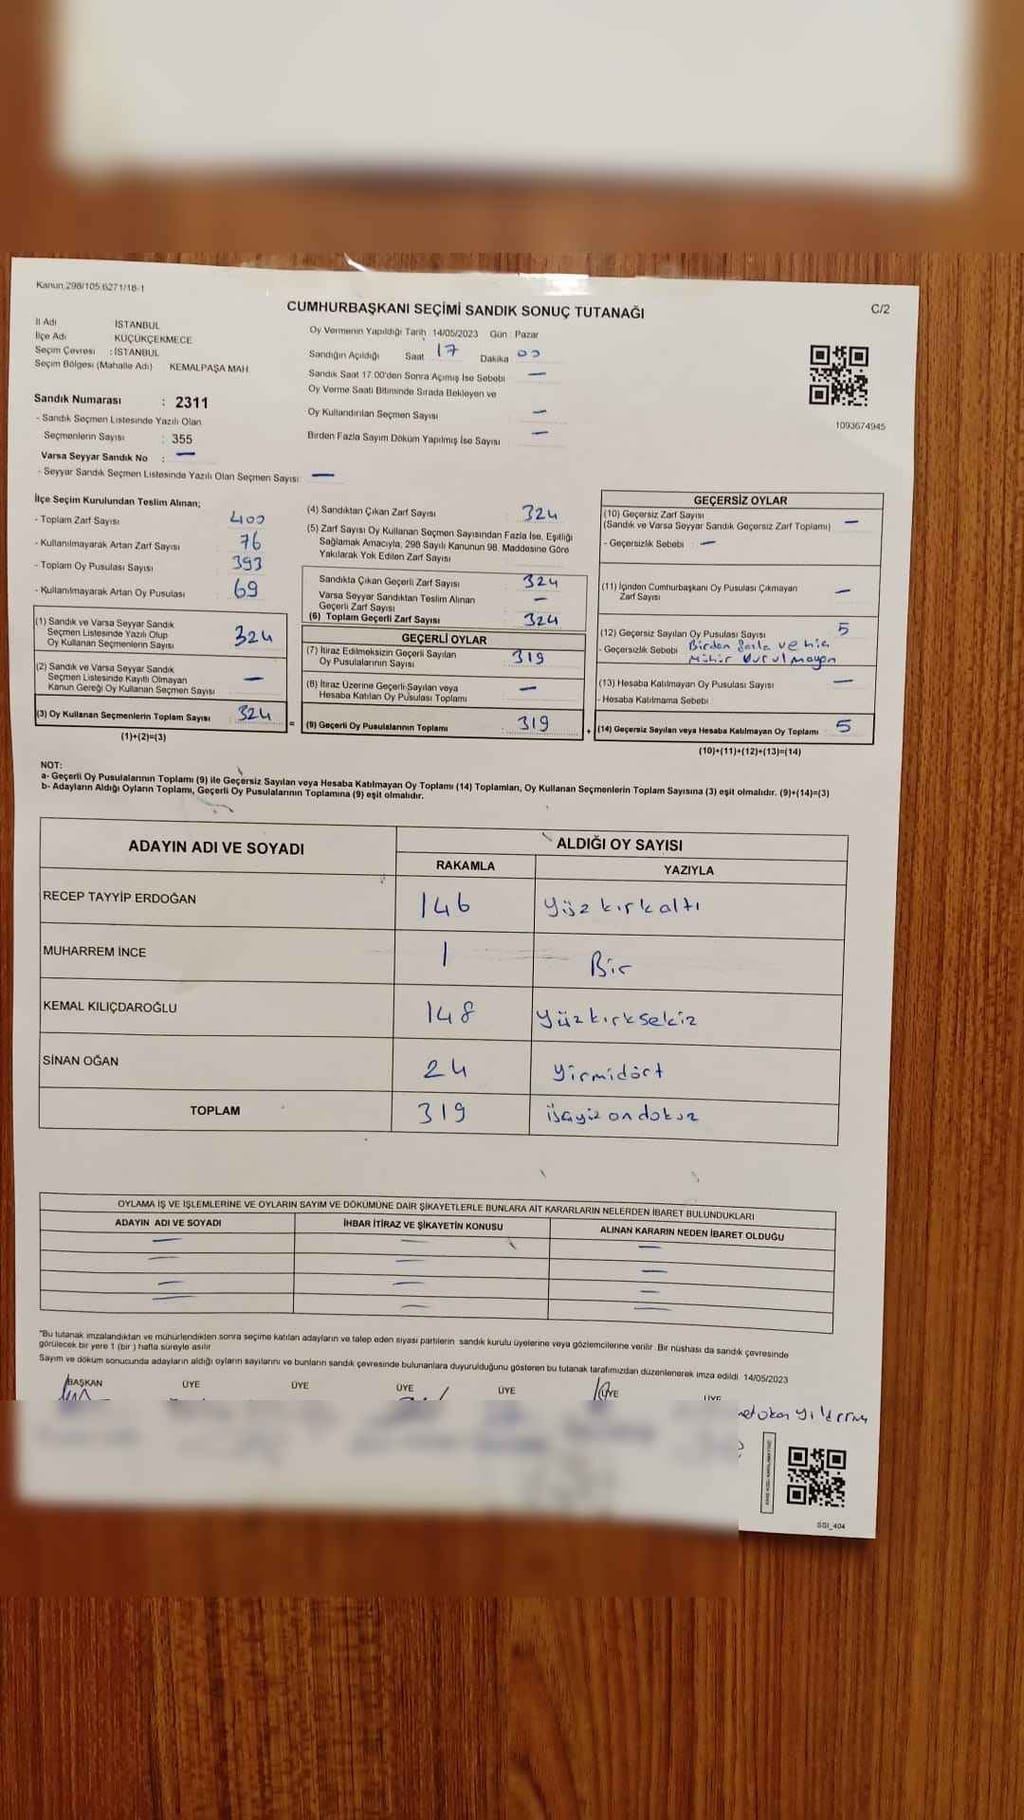 Kanun,298/105,6271/18-1
CUMHURBAŞKANI SEÇİMİ SANDIK SONUÇ TUTANAĞI
C/2
İl Adı İSTANBUL
İlçe Adı KÜÇÜKÇEKMECE
Seçim Çevresi : İSTANBUL
Seçim Bölgesi (Mahalle Adı) KEMALPAŞA MAH.
Sandık Numarası : 2311
- Sandık Seçmen Listesinde Yazılı Olan
Seçmenlerin Sayısı : 355
Varsa Seyyar Sandık No : —
- Seyyar Sandık Seçmen Listesinde Yazılı Olan Seçmen Sayısı: —
Oy Vermenin Yapıldığı Tarih 14/05/2023 Gün : Pazar
Sandığın Açıldığı Saat 17 Dakika 00
Sandık Saat 17.00'den Sonra Açımış İse Sebebi —
Oy Verme Saati Bitiminde Sırada Bekleyen ve
Oy Kullandırılan Seçmen Sayısı —
Birden Fazla Sayım Döküm Yapılmış İse Sayısı —
1093674945
İlçe Seçim Kurulundan Teslim Alınan;
- Toplam Zarf Sayısı 400
- Kullanılmayarak Artan Zarf Sayısı 76
- Toplam Oy Pusulası Sayısı 393
- Kullanılmayarak Artan Oy Pusulası 69
(1) Sandık ve Varsa Seyyar Sandık
Seçmen Listesinde Yazılı Olup
Oy Kullanan Seçmenlerin Sayısı 324
(2) Sandık ve Varsa Seyyar Sandık
Seçmen Listesinde Kayıtlı Olmayan
Kanun Gereği Oy Kullanan Seçmen Sayısı —
(3) Oy Kullanan Seçmenlerin Toplam Sayısı 324
(1)+(2)=(3)
(4) Sandıktan Çıkan Zarf Sayısı 324
(5) Zarf Sayısı Oy Kullanan Seçmen Sayısından Fazla İse, Eşitliği
Sağlamak Amacıyla, 298 Sayılı Kanunun 98. Maddesine Göre
Yakılarak Yok Edilen Zarf Sayısı
Sandıkta Çıkan Geçerli Zarf Sayısı 324
Varsa Seyyar Sandıktan Teslim Alınan
Geçerli Zarf Sayısı —
(6) Toplam Geçerli Zarf Sayısı 324
GEÇERLİ OYLAR
(7) İtiraz Edilmeksizin Geçerli Sayılan
Oy Pusulalarının Sayısı 319
(8) İtiraz Üzerine Geçerli Sayılan veya
Hesaba Katılan Oy Pusulası Toplamı —
= (9) Geçerli Oy Pusulalarının Toplamı 319
GEÇERSİZ OYLAR
(10) Geçersiz Zarf Sayısı
(Sandık ve Varsa Seyyar Sandık Geçersiz Zarf Toplamı) —
- Geçersizlik Sebebi —
(11) İçinden Cumhurbaşkanı Oy Pusulası Çıkmayan
Zarf Sayısı —
(12) Geçersiz Sayılan Oy Pusulası Sayısı 5
- Geçersizlik Sebebi Birden fazla ve hiç
mühür vurulmayan
(13) Hesaba Katılmayan Oy Pusulası Sayısı —
- Hesaba Katılmama Sebebi
+ (14) Geçersiz Sayılan veya Hesaba Katılmayan Oy Toplamı 5
(10)+(11)+(12)+(13)=(14)
NOT:
a- Geçerli Oy Pusulalarının Toplamı (9) ile Geçersiz Sayılan veya Hesaba Katılmayan Oy Toplamı (14) Toplamları, Oy Kullanan Seçmenlerin Toplam Sayısına (3) eşit olmalıdır. (9)+(14)=(3)
b- Adayların Aldığı Oyların Toplamı, Geçerli Oy Pusulalarının Toplamına (9) eşit olmalıdır.
ADAYIN ADI VE SOYADI ALDIĞI OY SAYISI
RAKAMLA YAZIYLA
RECEP TAYYİP ERDOĞAN 146 Yüz kırkaltı
MUHARREM İNCE 1 Bir
KEMAL KILIÇDAROĞLU 148 Yüzkırksekiz
SİNAN OĞAN 24 Yirmidört
TOPLAM 319 üçyüz ondokuz
OYLAMA İŞ VE İŞLEMLERİNE VE OYLARIN SAYIM VE DÖKÜMÜNE DAİR ŞİKAYETLERLE BUNLARA AİT KARARLARIN NELERDEN İBARET BULUNDUKLARI
ADAYIN ADI VE SOYADI İHBAR İTİRAZ VE ŞİKAYETİN KONUSU ALINAN KARARIN NEDEN İBARET OLDUĞU
"Bu tutanak imzalandıktan ve mühürlendikten sonra seçime katılan adayların ve talep eden siyasi partilerin sandık kurulu üyelerine veya gözlemcilerine verilir. Bir nüshası da sandık çevresinde
görülecek bir yere 1 (bir ) hafta süreyle asılır
Sayım ve döküm sonucunda adayların aldığı oyların sayılarını ve bunların sandık çevresinde bulunanlara duyurulduğunu gösteren bu tutanak tarafımızdan düzenlenerek imza edildi. 14/05/2023
BAŞKAN ÜYE ÜYE ÜYE ÜYE ÜYE ÜYE
SSI_404